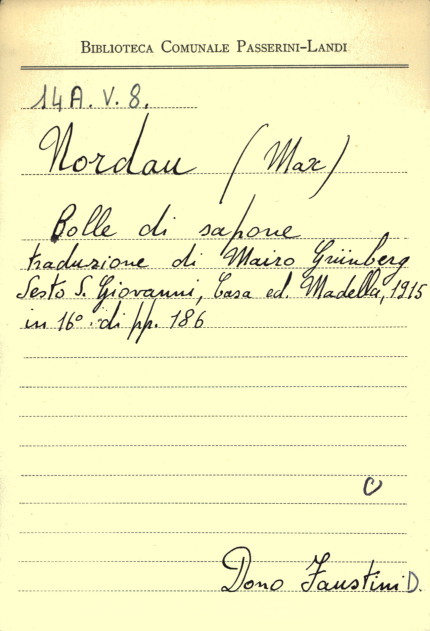 BIBLIOTECA COMUNALE PASSERINI-LANDI
14A. V. 8.
Nordau (Max)
Bolle di sapone
traduzione di Mairo Grünberg
Sesto S. Giovanni, Casa ed. Madella, 1915
in 16° di pp. 186
Dono Faustini D.